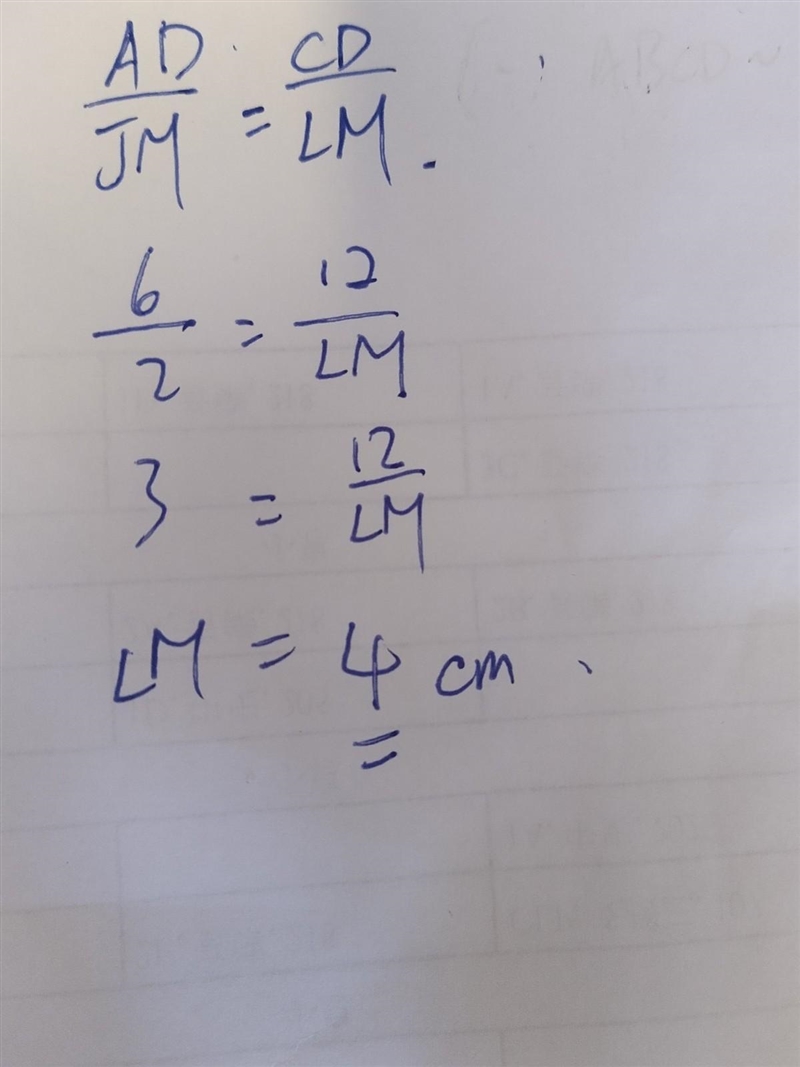 AD/JM = CD/LM.
6/2 = 12/LM
3 = 12/LM
LM = 4 cm.